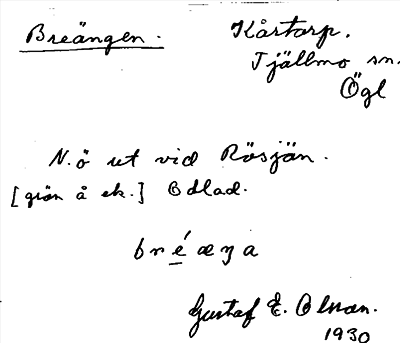 Breängen.
Kårtorp.
Tjällmo sn.
Ögl
N.ö ut vid Rösjön.
[från å ek.] Odlad.
bréæŋa
Gustaf E. Olson.
1930